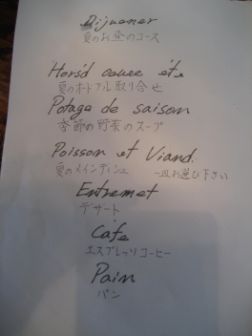 Dijeuner
夏のお昼のコース
Hors'd oeuvre et's
夏のオードブル取り合せ
Potage de saison
季節の野菜のスープ
Poisson et Viand.
夏のメインディシュ 一皿お選び下さい
Entremet
デザート
Cafe
エスプレッソコーヒー
Pain
パン